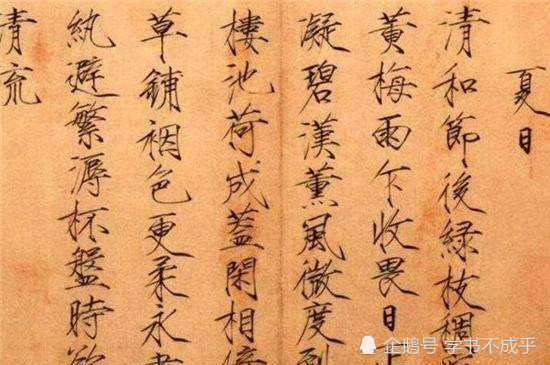 夏日
清和節後綠枝稠
黃梅雨乍收畏日
凝碧漢薰風微度到
樓池荷成蓋閑相倚
草鋪裀色更柔永
紈避繁溽杯盤時欲
清流
企鹅号 学书不成乎